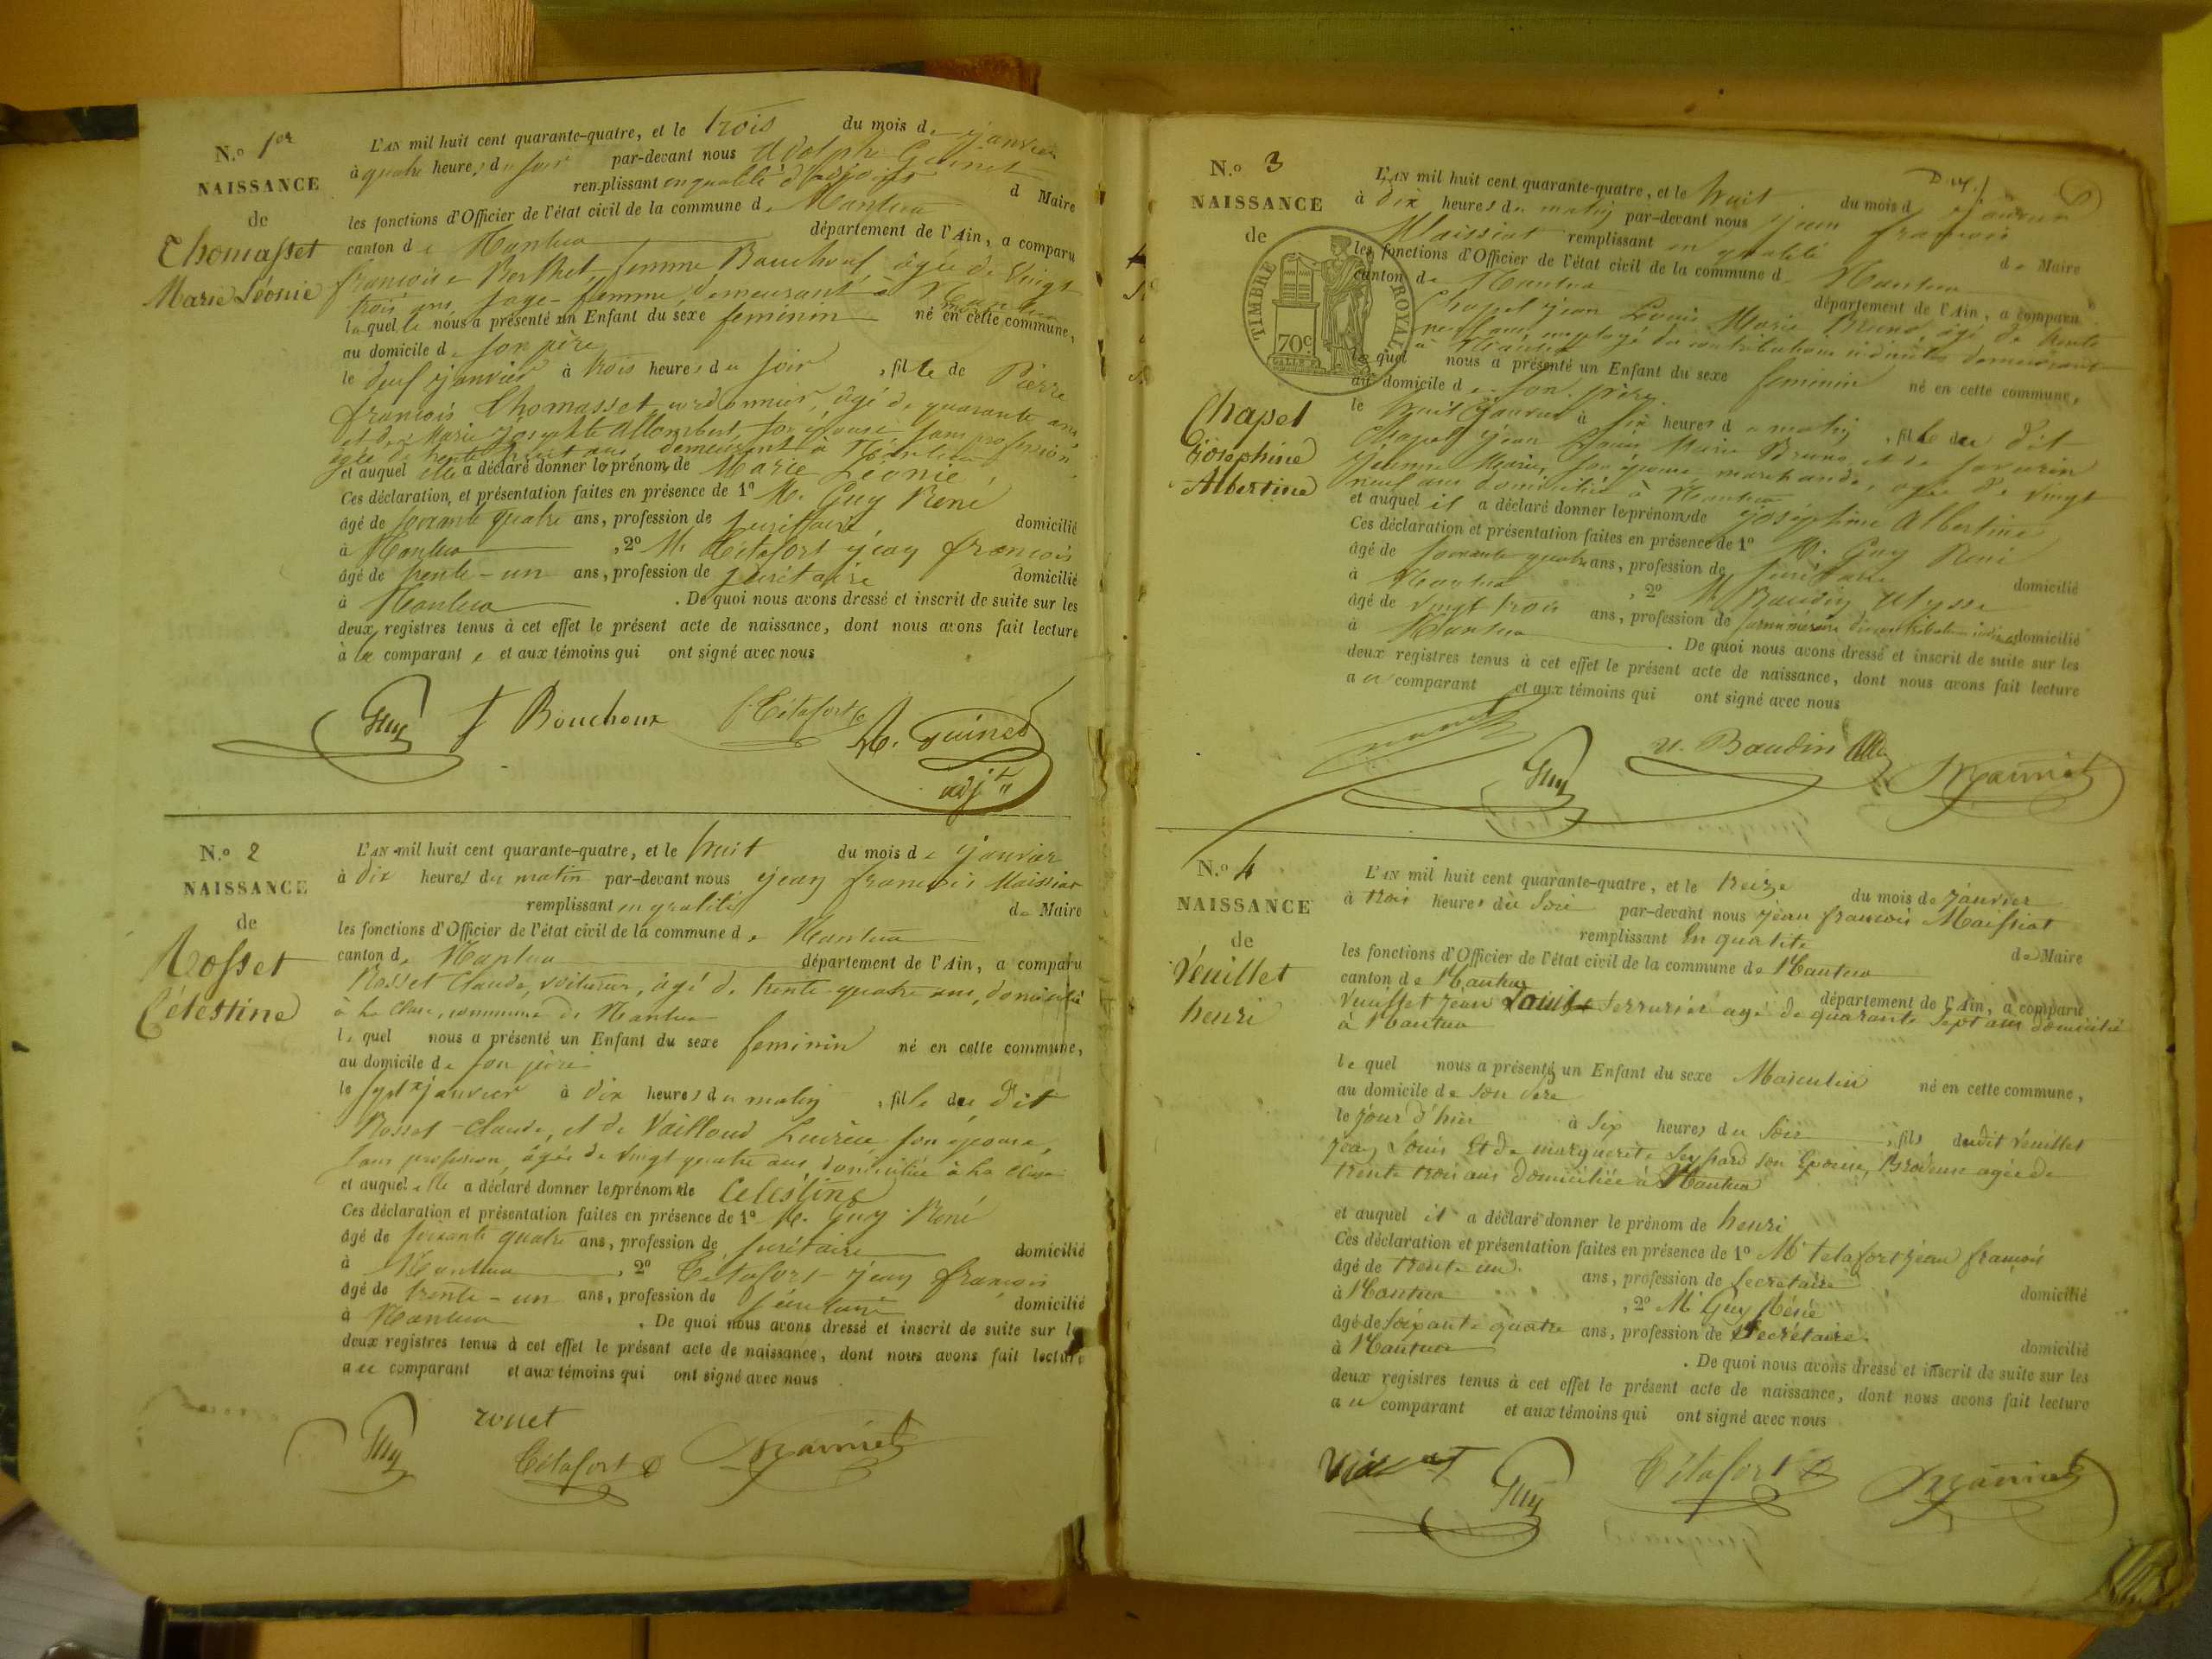 N.o 1er
NAISSANCE
de
Thomasset
Marie Léonie
L'AN mil huit cent quarante-quatre, et le trois du mois de janvier
à quatre heures du soir par-devant nous Adolphe Guinet
remplissant en qualité d'adjoint d Maire
les fonctions d'Officier de l'état civil de la commune de Nantua
canton de Nantua département de l'Ain, a comparu
françoise Berthet, femme Bouchoux, âgée de vingt
trois ans, sage-femme, demeurant à Nantua
laquelle nous a présenté un Enfant du sexe feminin né en cette commune,
au domicile de son père
le deux janvier à trois heures du soir, fille de Pierre
françois Thomasset, cordonnier, âgé de quarante ans
et de Marie Josephte Allombert, son épouse sans profession
âgée de trente huit ans, demeurant à Nantua
et auquel elle a déclaré donner les prénoms de Marie Léonie,
Ces déclaration et présentation faites en présence de 1o M. Guy René
âgé de soixante quatre ans, profession de secrétaire domicilié
à Nantua, 2o M. Tétafort jean françois
âgé de trente-un ans, profession de secrétaire domicilié
à Nantua. De quoi nous avons dressé et inscrit de suite sur les
deux registres tenus à cet effet le présent acte de naissance, dont nous avons fait lecture
à la comparante et aux témoins qui ont signé avec nous
Guy f Bouchoux Tétafort
A. Guinet
adjt
N.o 2
NAISSANCE
de
Rosset
Célestine
L'AN mil huit cent quarante-quatre, et le huit du mois de janvier
à dix heures du matin par-devant nous jean françois Maissiat
remplissant en qualité de Maire
les fonctions d'Officier de l'état civil de la commune de Nantua
canton de Nantua département de l'Ain, a comparu
Rosset Claude, voiturier, âgé de trente quatre ans, domicilié
à La Cluse, commune de Nantua
lequel nous a présenté un Enfant du sexe feminin né en cette commune,
au domicile de son père
le sept janvier à dix heures du matin, fille du dit
Rosset Claude, et de Vailloud Lucrèce son épouse,
sans profession, âgée de vingt quatre ans, domiciliée à La Cluse
et auquel elle a déclaré donner le prénom de Celéstine
Ces déclaration et présentation faites en présence de 1o M. Guy René
âgé de soixante quatre ans, profession de secrétaire domicilié
à Nantua, 2o Tétafort jean françois
âgé de trente-un ans, profession de secrétaire domicilié
à Nantua. De quoi nous avons dressé et inscrit de suite sur les
deux registres tenus à cet effet le présent acte de naissance, dont nous avons fait lecture
au comparant et aux témoins qui ont signé avec nous
Guy Tétafort Maissiat
N.o 3
NAISSANCE
de
TIMBRE ROYAL
70c
Chapel
Joséphine
Albertine
L'AN mil huit cent quarante-quatre, et le huit du mois de janvier
à dix heures du matin par-devant nous jean françois
Maissiat remplissant en qualité de Maire
les fonctions d'Officier de l'état civil de la commune de Nantua
canton de Nantua département de l'Ain, a comparu
Chapel jean Louis Marie Bruno, âgé de trente
neuf ans, employé des contributions indirectes demeurant
à Nantua
lequel nous a présenté un Enfant du sexe feminin né en cette commune,
au domicile de son père
le huit janvier à six heures du matin, fille du dit
Chapel jean Louis Marie Bruno et de Saverin
jeanne Marie, son épouse, marchande, âgée de vingt
neuf ans domiciliée à Nantua
et auquel il a déclaré donner les prénoms de joséphine Albertine
Ces déclaration et présentation faites en présence de 1o M. Guy René
âgé de soixante quatre ans, profession de secrétaire domicilié
à Nantua, 2o M. Baudin Ulysse
âgé de vingt trois ans, profession de surnuméraire des contributions indirectes domicilié
à Nantua. De quoi nous avons dressé et inscrit de suite sur les
deux registres tenus à cet effet le présent acte de naissance, dont nous avons fait lecture
au comparant et aux témoins qui ont signé avec nous
Guy U. Baudin Maissiat
N.o 4
NAISSANCE
de
Veuillet
henri
L'AN mil huit cent quarante-quatre, et le treize du mois de janvier
à trois heures du Soir par-devant nous jean françois Maissiat
remplissant En qualité de Maire
les fonctions d'Officier de l'état civil de la commune de Nantua
canton de Nantua département de l'Ain, a comparu
Veuillet jean Louis Serrurier agé de quarante Sept ans domicilié
à Nantua
lequel nous a présenté un Enfant du sexe Masculin né en cette commune,
au domicile de son père
le jour d'hier à Six heures du Soir, fils dudit Veuillet
jean Louis Et de marguerite son Epouse, Brodeuse agée de
trente trois ans domiciliée à Nantua
et auquel il a déclaré donner le prénom de henri
Ces déclaration et présentation faites en présence de 1o Mr Tetafort jean françois
âgé de trente un ans, profession de Secrétaire domicilié
à Nantua, 2o Mr Guy Réné
âgé de Soixante quatre ans, profession de Secrétaire domicilié
à Nantua. De quoi nous avons dressé et inscrit de suite sur les
deux registres tenus à cet effet le présent acte de naissance, dont nous avons fait lecture
au comparant et aux témoins qui ont signé avec nous
Guy Tétafort Maissiat